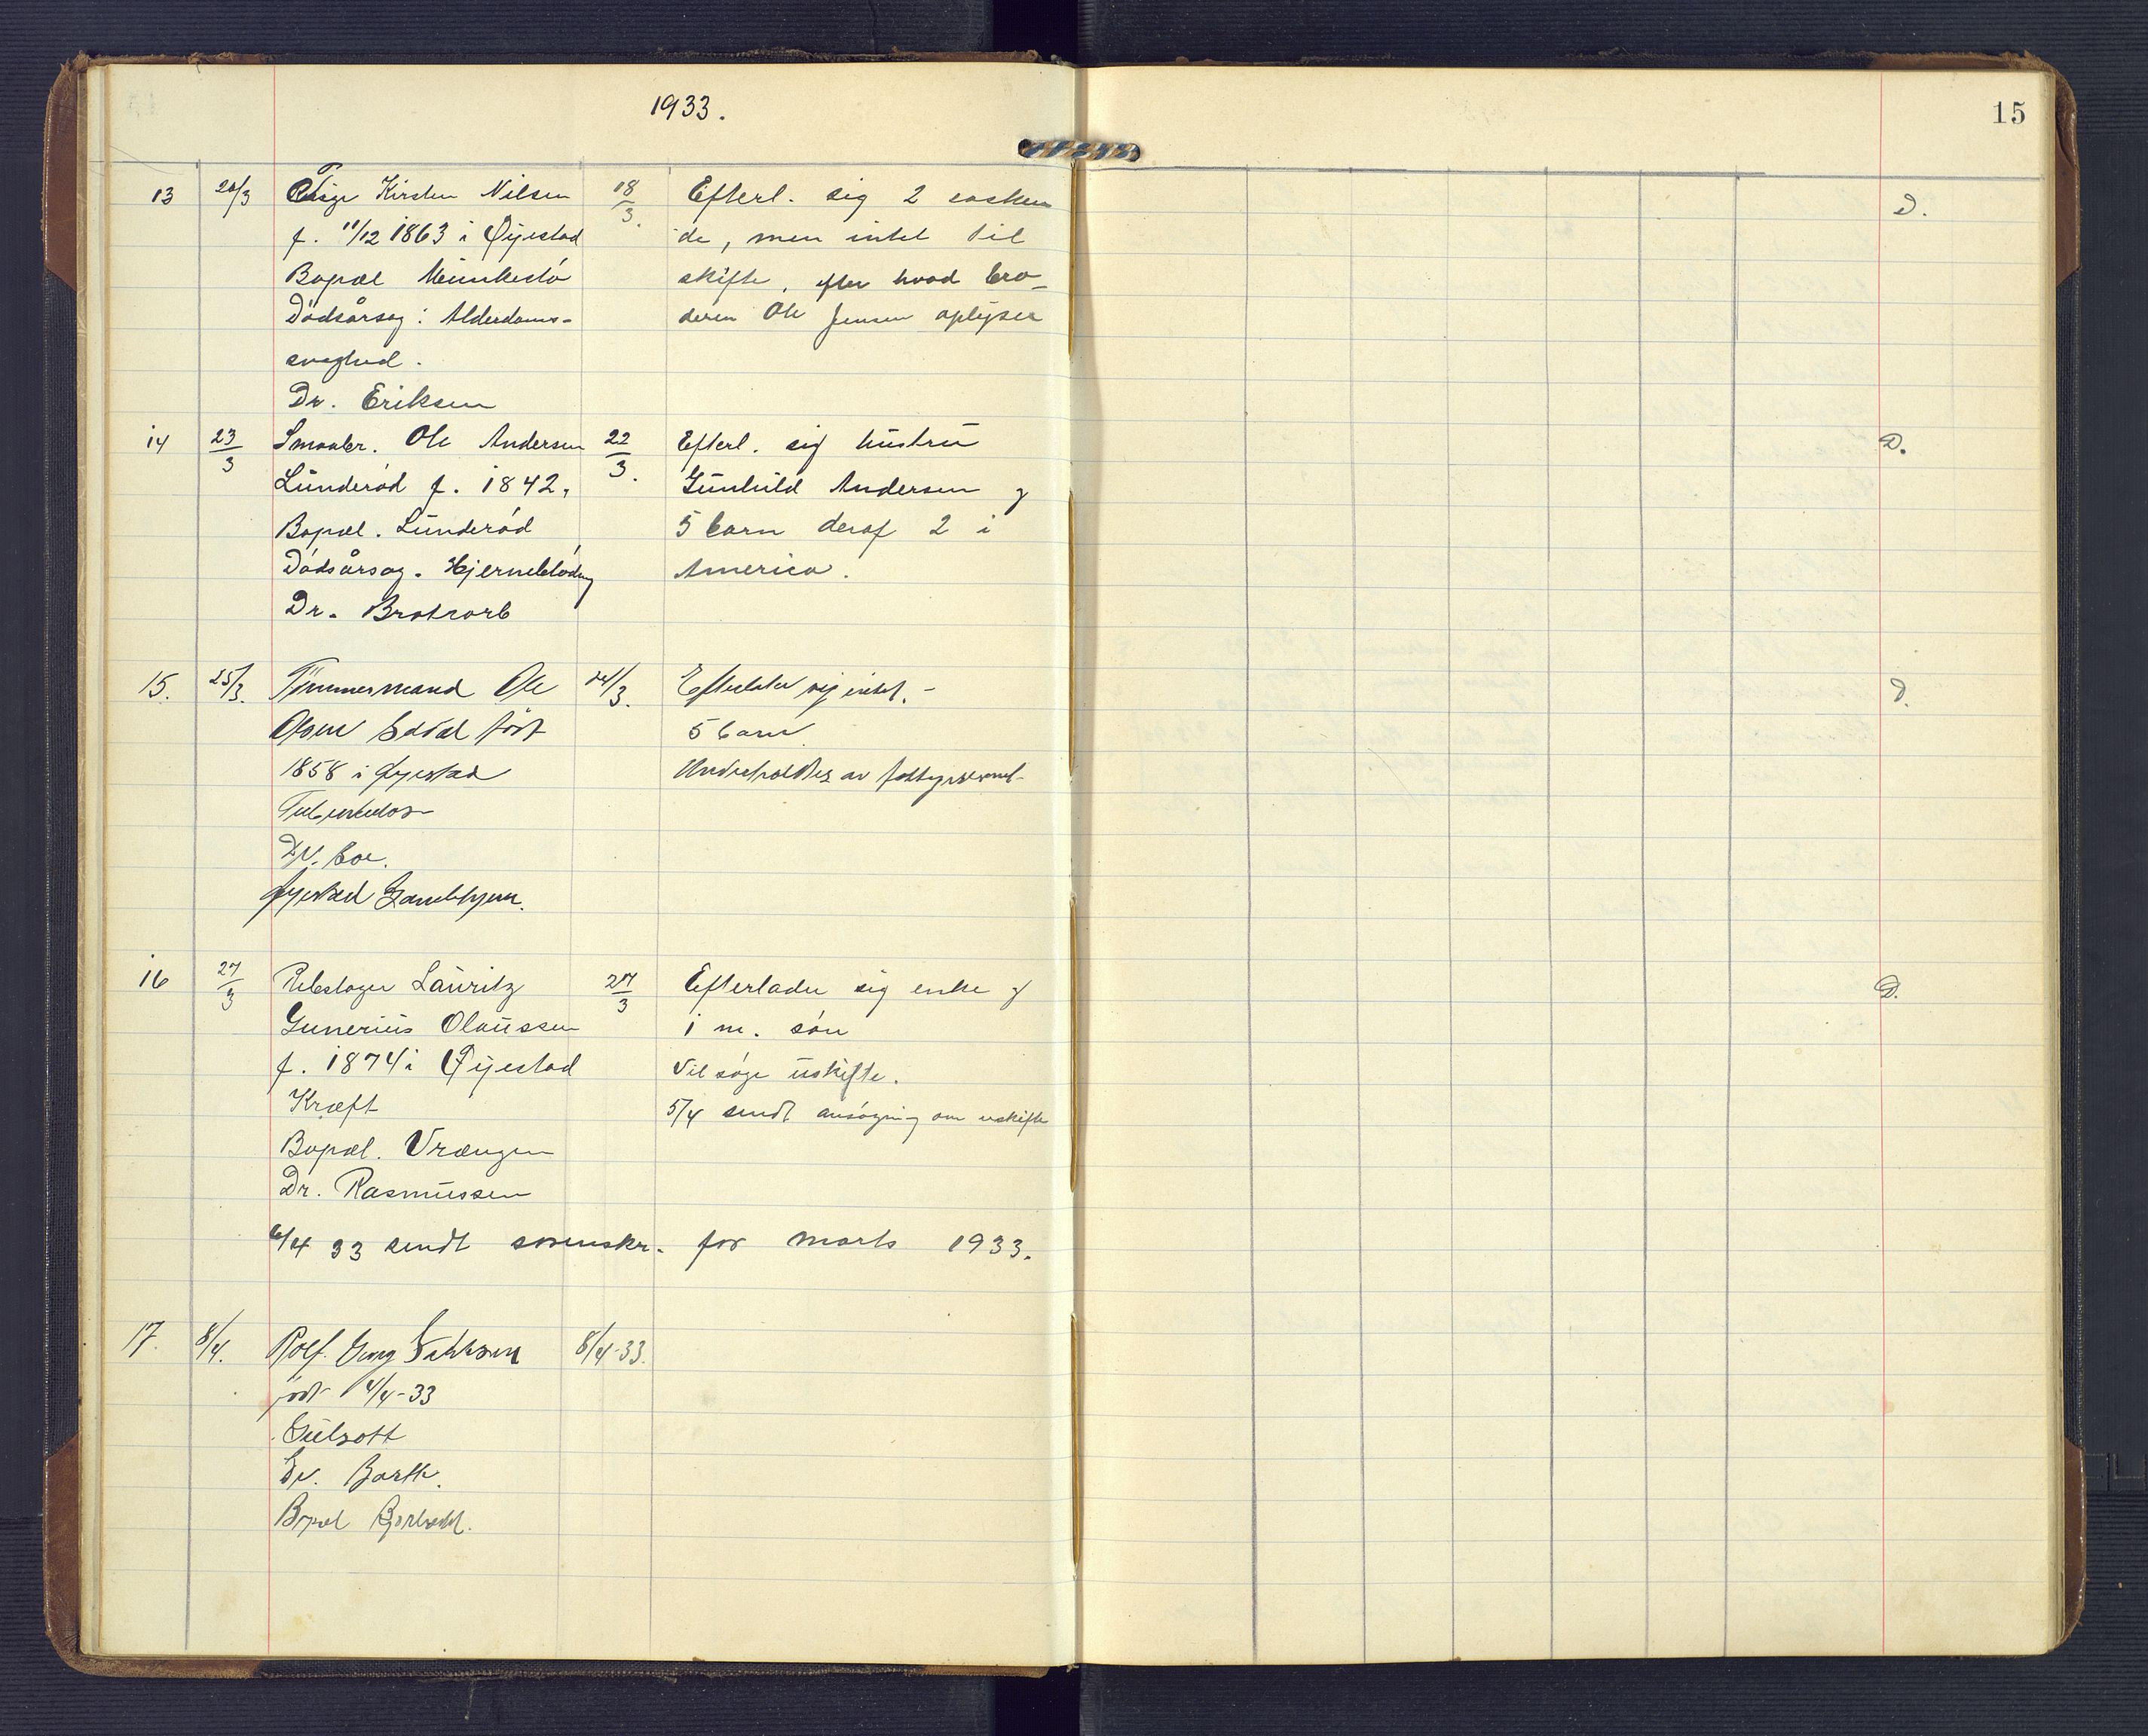 1933.
15
13 20/3 Kirsten Nilsen 18/3. Efterl. sig 2 søsken
f. 11/12 1863 i Øyestad de, men intet til
Bopæl skifte, efter hvad bro-
Dødsårsag: Alderdoms- deren Ole Jensen oplyser
svaghed.
Dr. Eriksen
D.
14 23/3 Småbr. Ole Andersen 22/3. Efterl. sig hustru
Lunderød f. 1842, Gunhild Andersen og
Bopæl. Lunderød 5 barn deraf 2 i
Dødsårsag. Hjerneblødng America.
Dr. Brotrorb
D.
15. 25/3. Tømmermand Ole 24/3. Efterlater sig intet.-
Olsen født 5 barn
1858 i Øyestad Underholdtes av
Tuberkulose
Dr. Boe.
Øyestad Gamlehjem.
D.
16 27/3 Rebslager Lauritz 27/3 Efterlader sig enke og
Gunerius Olaussen 1 m. søn
f. 1874 i Øyestad Vil søge uskifte.
Kræft 5/4 sendt ansøgning om uskifte
Bopæl. Vrængen
Dr. Rasmussen
D.
6/4 33 sendt sorenskr. for marts 1933.
17. 8/4. Rolf Georg 8/4-33.
født 4/4-33
Gulsott
Dr. Barth.
Bopæl